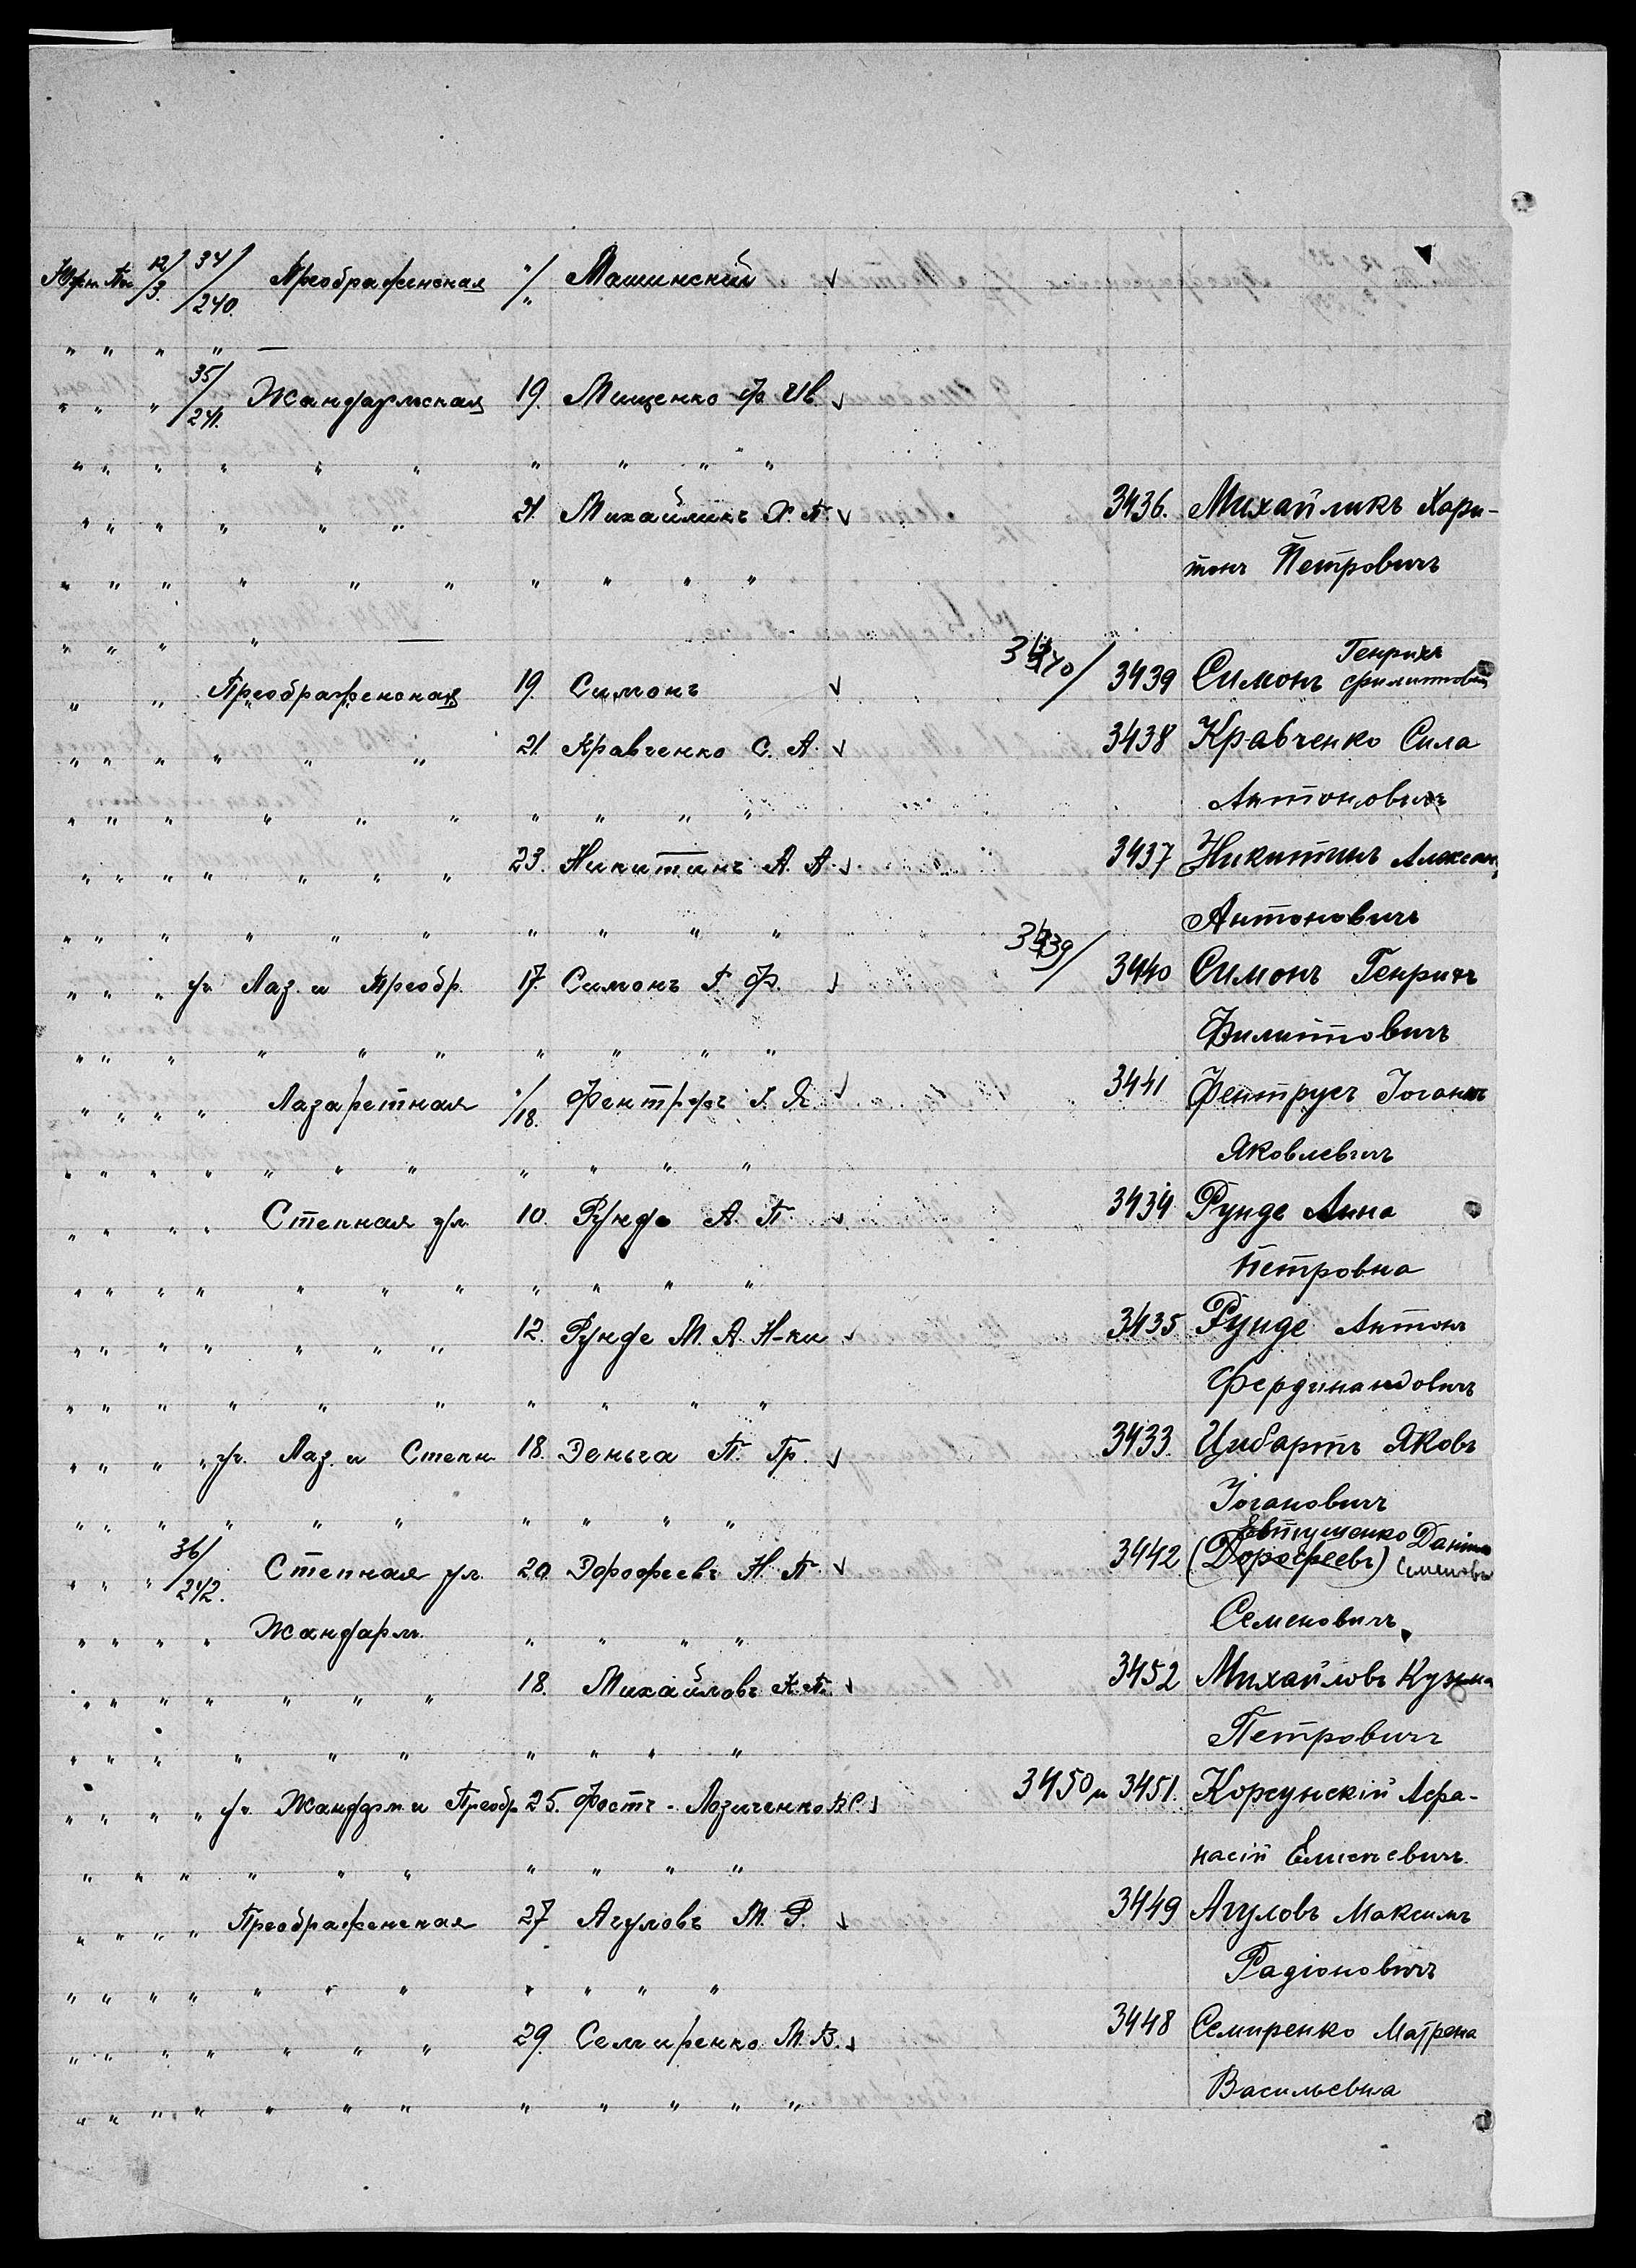 Южн. По 12/3. 34/240. Преображенская "/" Машинскій ✓
" " " " —
" " " 35/241. Жандармская 19. Мищенко Ф. Ив. ✓
" " " " " " " " " "
" " " " " " 21. Михайликъ Х. П. ✓ 3436. Михайликъ Хари-
" " " " " " " " " " тонъ Петровичъ
" " " " —
" " Преображенская 19. Симонъ ✓ 3440/ 3439 Симонъ Генрихъ Филипповичъ
" " " " " " 21. Кравченко С. А. ✓ 3438 Кравченко Сила
" " " " " " " " " " Антоновичъ
" " " " " " " 23. Никитинъ А. А. ✓ 3437 Никитинъ Алексан
" " " " " " " " " " Антоновичъ
" " " уг. Лаз. и Преобр. 17. Симонъ Г. Ф. ✓ 3439/ 3440 Симонъ Генрихъ
" " " " " " " " " " Филипповичъ
" " " " Лазаретная "/18. Фентрусъ І. Я. ✓ 3441 Фентрусъ Іоганъ
" " " " " " " " " " " Яковлевичъ
" " " " Степная ул. 10. Рунде А. П. ✓ 3434 Рунде Анна
" " " " " " " " " " " Петровна
" " " " " " " 12. Рунде М. А. Н-ки ✓ 3435 Рунде Антонъ
" " " " " " " " " " Фердинандовичъ
" " " " уг. Лаз. и Степн. 18. Деньга П. Гр. ✓ 3433. Цибартъ Яковъ
" " " " " " " " " " Іогановичъ
" " " 36/242. Степная ул. 20. Дорофеевъ Н. П. ✓ 3442 (Дорофеевъ) Евтушенко Данило Семеновъ
" " " " Жандарм. " " " " Семеновичъ
" " " " " " " 18. Михайловъ К. П. ✓ 3452 Михайловъ Кузьма
" " " " " " " " " " Петровичъ
" " " " уг. Жандарм. и Преобр. 25. Фостъ-Лозиченко В. С. ✓ 3450 и 3451. Корсунскій Афа-
" " " " " " " " " " насій Елисеевичъ.
" " " " Преображенская 27 Агуловъ М. Р. ✓ 3449 Агуловъ Максимъ
" " " " " " " " " " " Радіоновичъ
" " " " " " " 29. Семиренко М. В. ✓ 3448 Семиренко Матрена
" " " " " " " " " " " " Васильевна